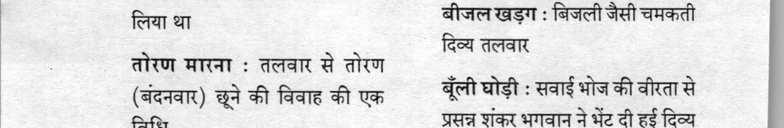 लिया था
तोरण मारना : तलवार से तोरण
(बंदनवार) छूने की विवाह की एक
विधि
बीजल खड़ग : बिजली जैसी चमकती
दिव्य तलवार
बूँली घोड़ी : सवाई भोज की वीरता से
प्रसन्न शंकर भगवान ने भेंट दी हुई दिव्य